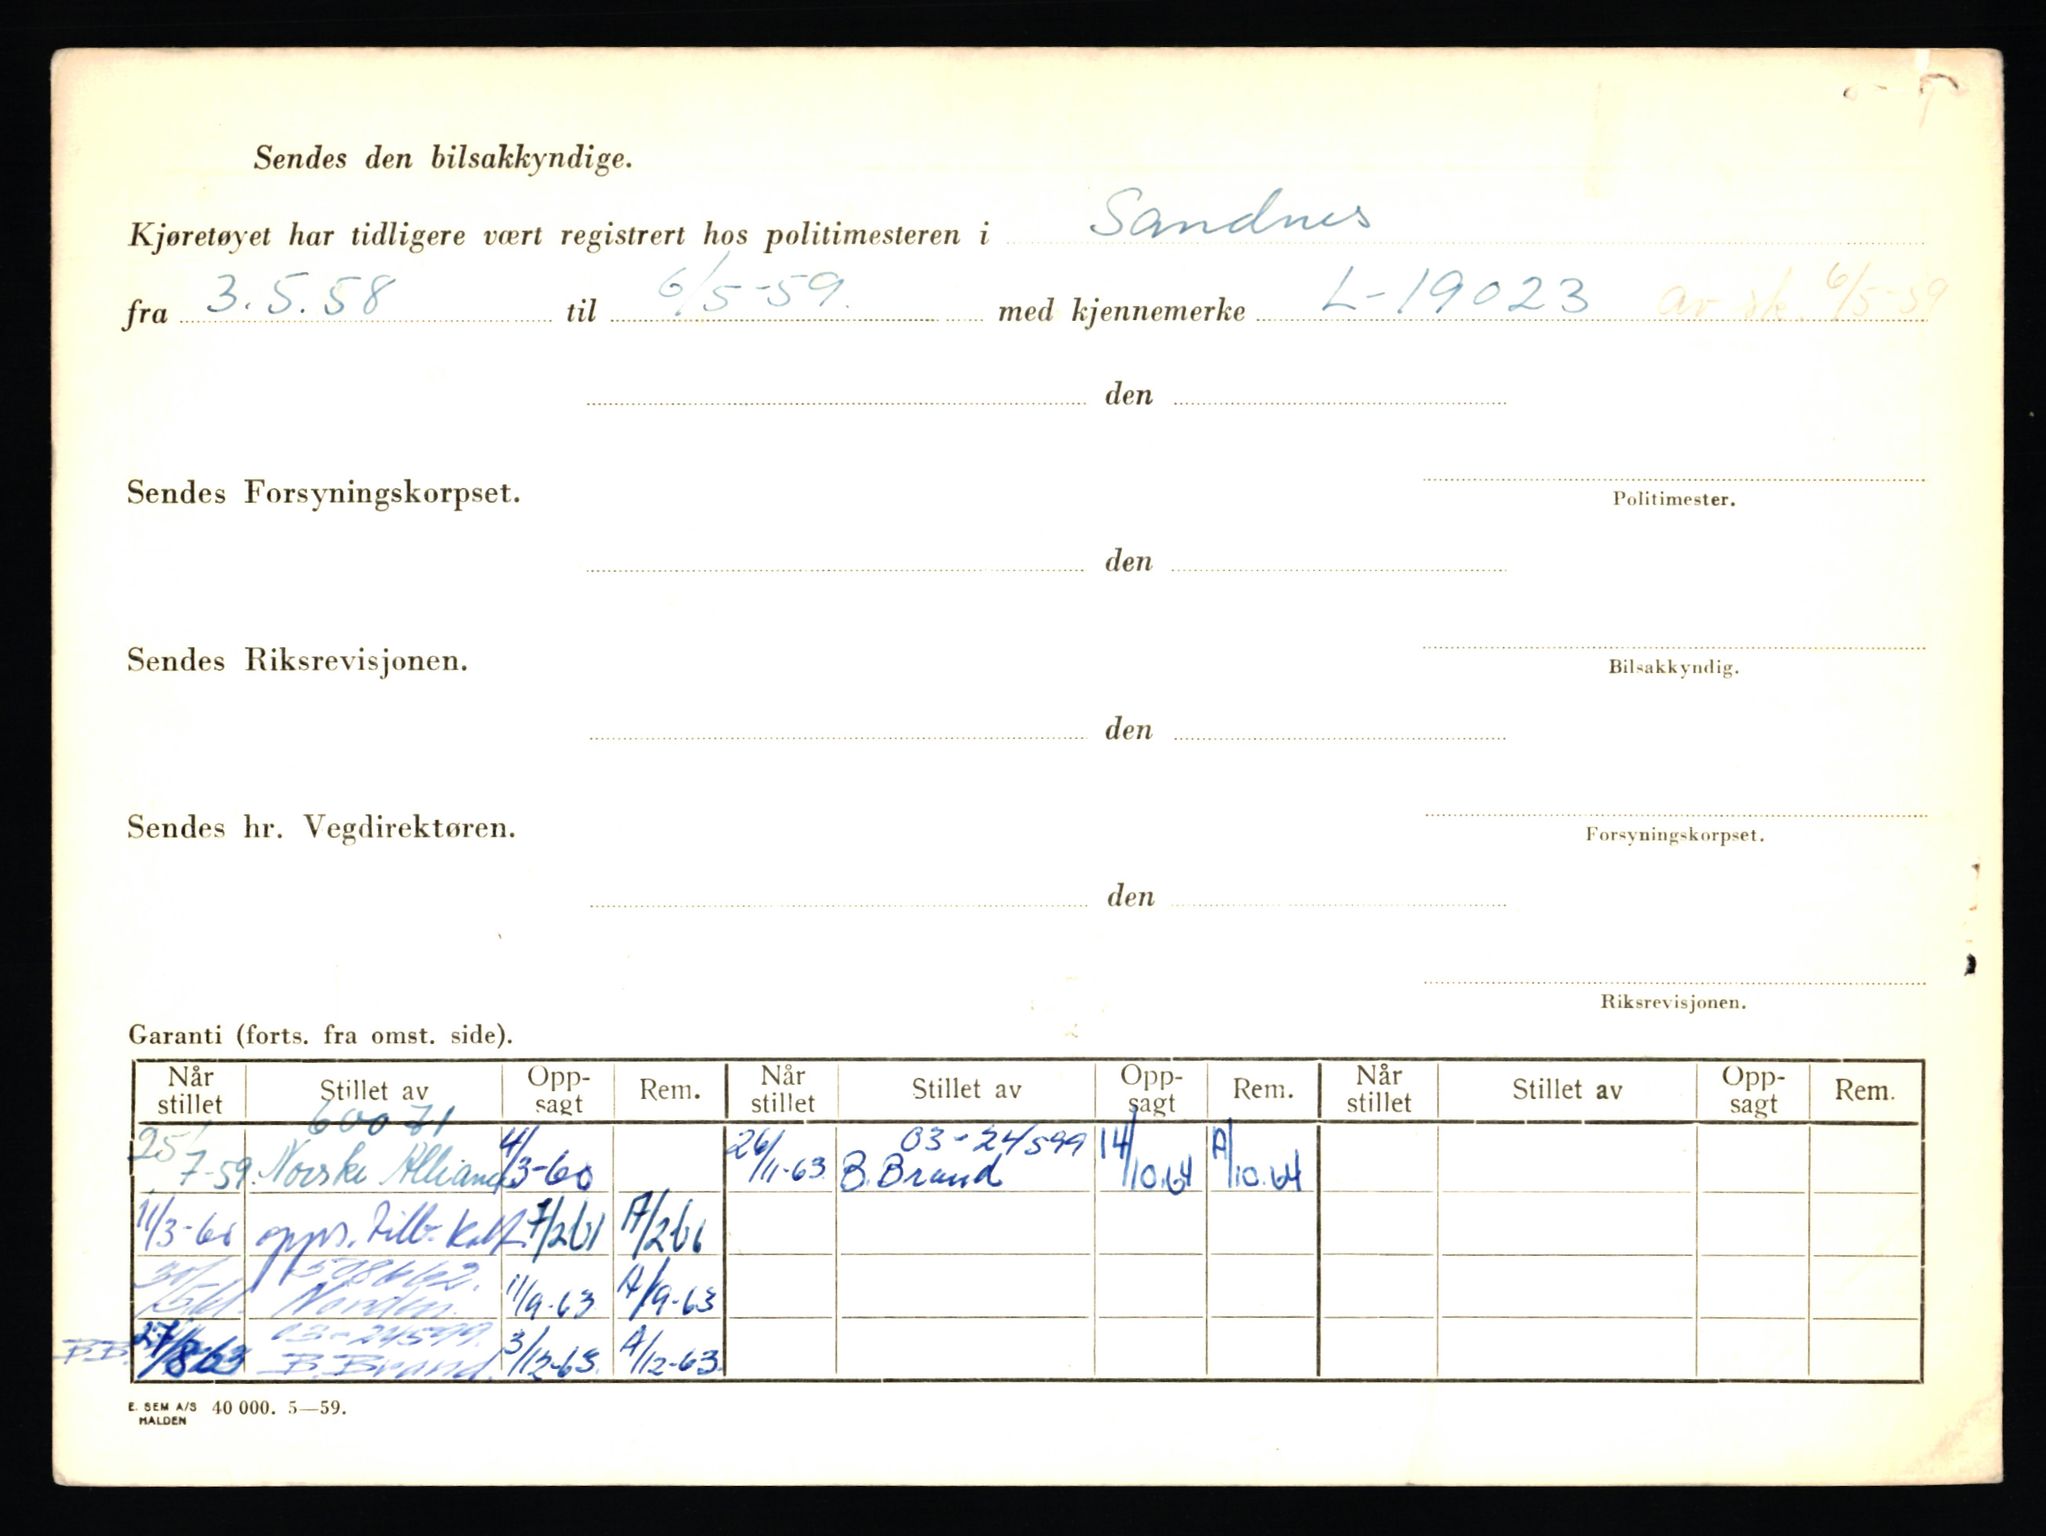 Sendes den bilsakkyndige.
Kjøretøyet har tidligere vært registrert hos politimesteren i Sandnes
fra 3.5.58 til 6/5-59. med kjennemerke L-19023 av sk. 6/5-59
den
Sendes Forsyningskorpset.
Politimester.
den
Sendes Riksrevisjonen.
Bilsakkyndig.
den
Sendes hr. Vegdirektøren.
Forsyningskorpset.
den
Riksrevisjonen.
Garanti (forts. fra omst. side).
Når stillet Stillet av Opp-sagt Rem. Når stillet Stillet av Opp-sagt Rem. Når stillet Stillet av Opp-sagt Rem.
60071 03-24599
25/7-59. Norske Alliance 4/3-60 26/11-63 B. Brand 14/10.64 A/10.64
11/3-60 opps. 7/261 A/261
598662.
Norden. 11/9-63 A/9-63
03-24599.
B.B. 27/8-63 B. Brand. 3/12-63. A/12-63.
E. SEM A/S HALDEN 40 000. 5—59.